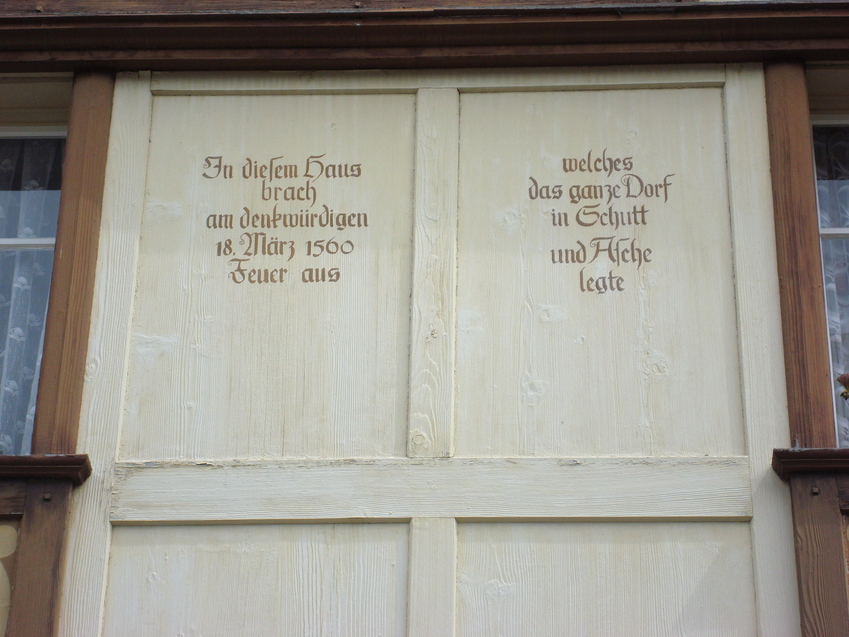 In diesem Haus
brach
am denkwürdigen
18. März 1560
Feuer aus
welches
das ganze Dorf
in Schutt
und Asche
legte